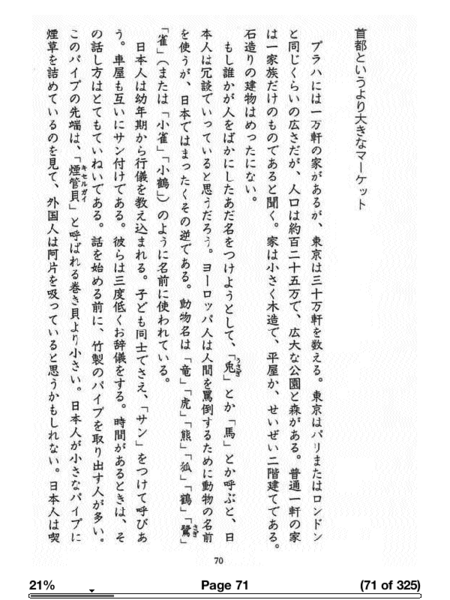 首都というより大きなマーケット
プラハには一万軒の家があるが、東京は三十万軒を数える。東京はパリまたはロンドン
と同じくらいの広さだが、人口は約百二十五万で、広大な公園と森がある。普通一軒の家
は一家族だけのものであると聞く。家は小さく木造で、平屋か、せいぜい二階建てである。
石造りの建物はめったにない。
もし誰かが人をばかにしたあだ名をつけようとして、「兎」とか「馬」とか呼ぶと、日
本人は冗談でいっていると思うだろう。ヨーロッパ人は人間を罵倒するために動物の名前
を使うが、日本ではまったくその逆である。動物名は「竜」「虎」「熊」「狐」「鶴」「鷺」
「雀」(または「小雀」「小鶴」)のように名前に使われている。
日本人は幼年期から行儀を教え込まれる。子ども同士でさえ、「サン」をつけて呼びあ
う。車屋も互いにサン付けである。彼らは三度低くお辞儀をする。時間があるときは、そ
の話し方はとてもていねいである。話を始める前に、竹製のパイプを取り出す人が多い。
このパイプの先端は、「煙管貝」と呼ばれる巻き貝より小さい。日本人が小さなパイプに
煙草を詰めているのを見て、外国人は阿片を吸っていると思うかもしれない。日本人は喫
うさぎ
さぎ
キセルガイ
70
21%
Page 71
(71 of 325)